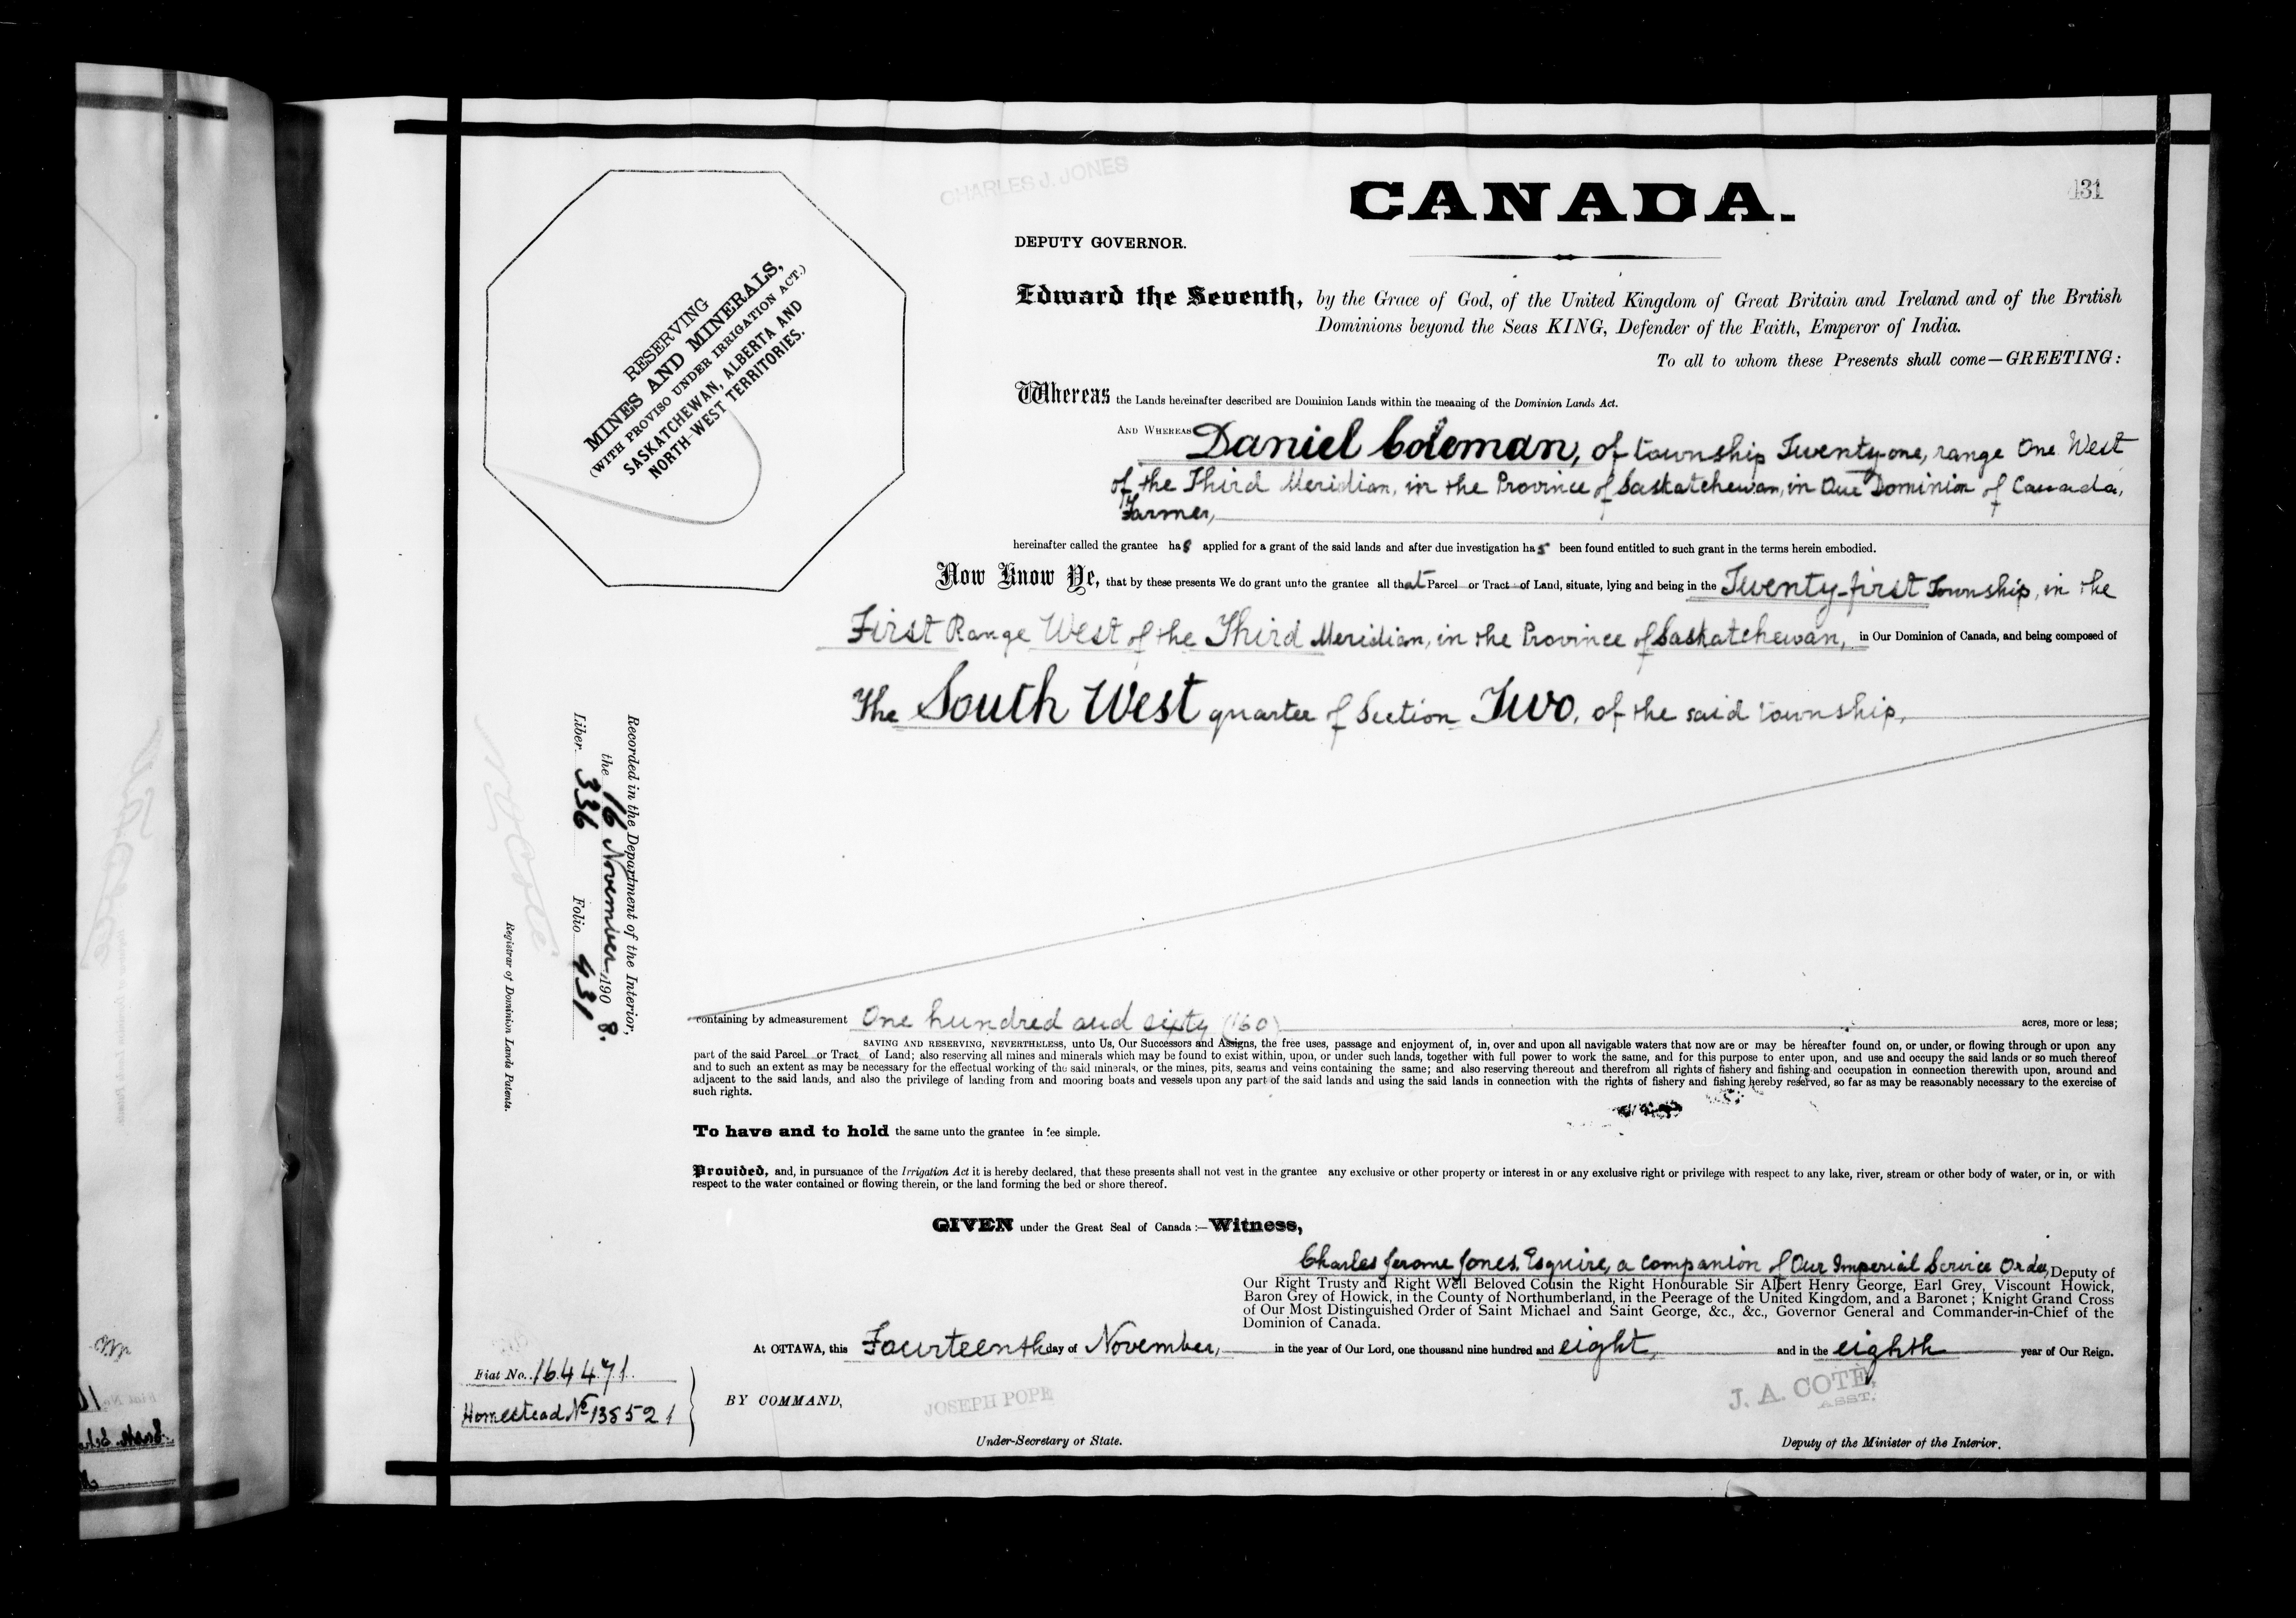 CHARLES J. JONES
CANADA.
431
DEPUTY GOVERNOR.
Edward the Seventh, by the Grace of God, of the United Kingdom of Great Britain and Ireland and of the British
Dominions beyond the Seas KING, Defender of the Faith, Emperor of India.
To all to whom these Presents shall come—GREETING:
RESERVING
MINES AND MINERALS,
(WITH PROVISO UNDER IRRIGATION ACT.)
SASKATCHEWAN, ALBERTA AND
NORTH-WEST TERRITORIES.
Whereas the Lands hereinafter described are Dominion Lands within the meaning of the Dominion Lands Act.
AND WHEREAS Daniel Coleman, of township Twenty-one, range One West
of the Third Meridian, in the Province of Saskatchewan, in Our Dominion of Canada,
Farmer,
hereinafter called the grantee has applied for a grant of the said lands and after due investigation has been found entitled to such grant in the terms herein embodied.
Now Know Ye, that by these presents We do grant unto the grantee all that Parcel or Tract of Land, situate, lying and being in the Twenty-first Township, in the
First Range West of the Third Meridian, in the Province of Saskatchewan, in Our Dominion of Canada, and being composed of
The South West quarter of Section Two, of the said township,
Recorded in the Department of the Interior,
the 16 November, 1908.
Liber 336 Folio 431
N O Coté
Registrar of Dominion Lands Patents.
containing by admeasurement One hundred and sixty (160) acres, more or less;
SAVING AND RESERVING, NEVERTHELESS, unto Us, Our Successors and Assigns, the free uses, passage and enjoyment of, in, over and upon all navigable waters that now are or may be hereafter found on, or under, or flowing through or upon any
part of the said Parcel or Tract of Land; also reserving all mines and minerals which may be found to exist within, upon, or under such lands, together with full power to work the same, and for this purpose to enter upon, and use and occupy the said lands or so much thereof
and to such an extent as may be necessary for the effectual working of the said minerals, or the mines, pits, seams and veins containing the same; and also reserving thereout and therefrom all rights of fishery and fishing and occupation in connection therewith upon, around and
adjacent to the said lands, and also the privilege of landing from and mooring boats and vessels upon any part of the said lands and using the said lands in connection with the rights of fishery and fishing hereby reserved, so far as may be reasonably necessary to the exercise of
such rights.
To have and to hold the same unto the grantee in fee simple.
Provided, and, in pursuance of the Irrigation Act it is hereby declared, that these presents shall not vest in the grantee any exclusive or other property or interest in or any exclusive right or privilege with respect to any lake, river, stream or other body of water, or in, or with
respect to the water contained or flowing therein, or the land forming the bed or shore thereof.
GIVEN under the Great Seal of Canada:—Witness,
Charles Jerome Jones, Esquire, a companion of Our Imperial Service Order, Deputy of
Our Right Trusty and Right Well Beloved Cousin the Right Honourable Sir Albert Henry George, Earl Grey, Viscount Howick,
Baron Grey of Howick, in the County of Northumberland, in the Peerage of the United Kingdom, and a Baronet; Knight Grand Cross
of Our Most Distinguished Order of Saint Michael and Saint George, &c., &c., Governor General and Commander-in-Chief of the
Dominion of Canada.
At OTTAWA, this Fourteenth day of November, in the year of Our Lord, one thousand nine hundred and eight, and in the eighth year of Our Reign.
Fiat No. 164471.
Homestead No 138521
BY COMMAND,
JOSEPH POPE
J. A. COTÉ,
ASST.
Under-Secretary of State.
Deputy of the Minister of the Interior.